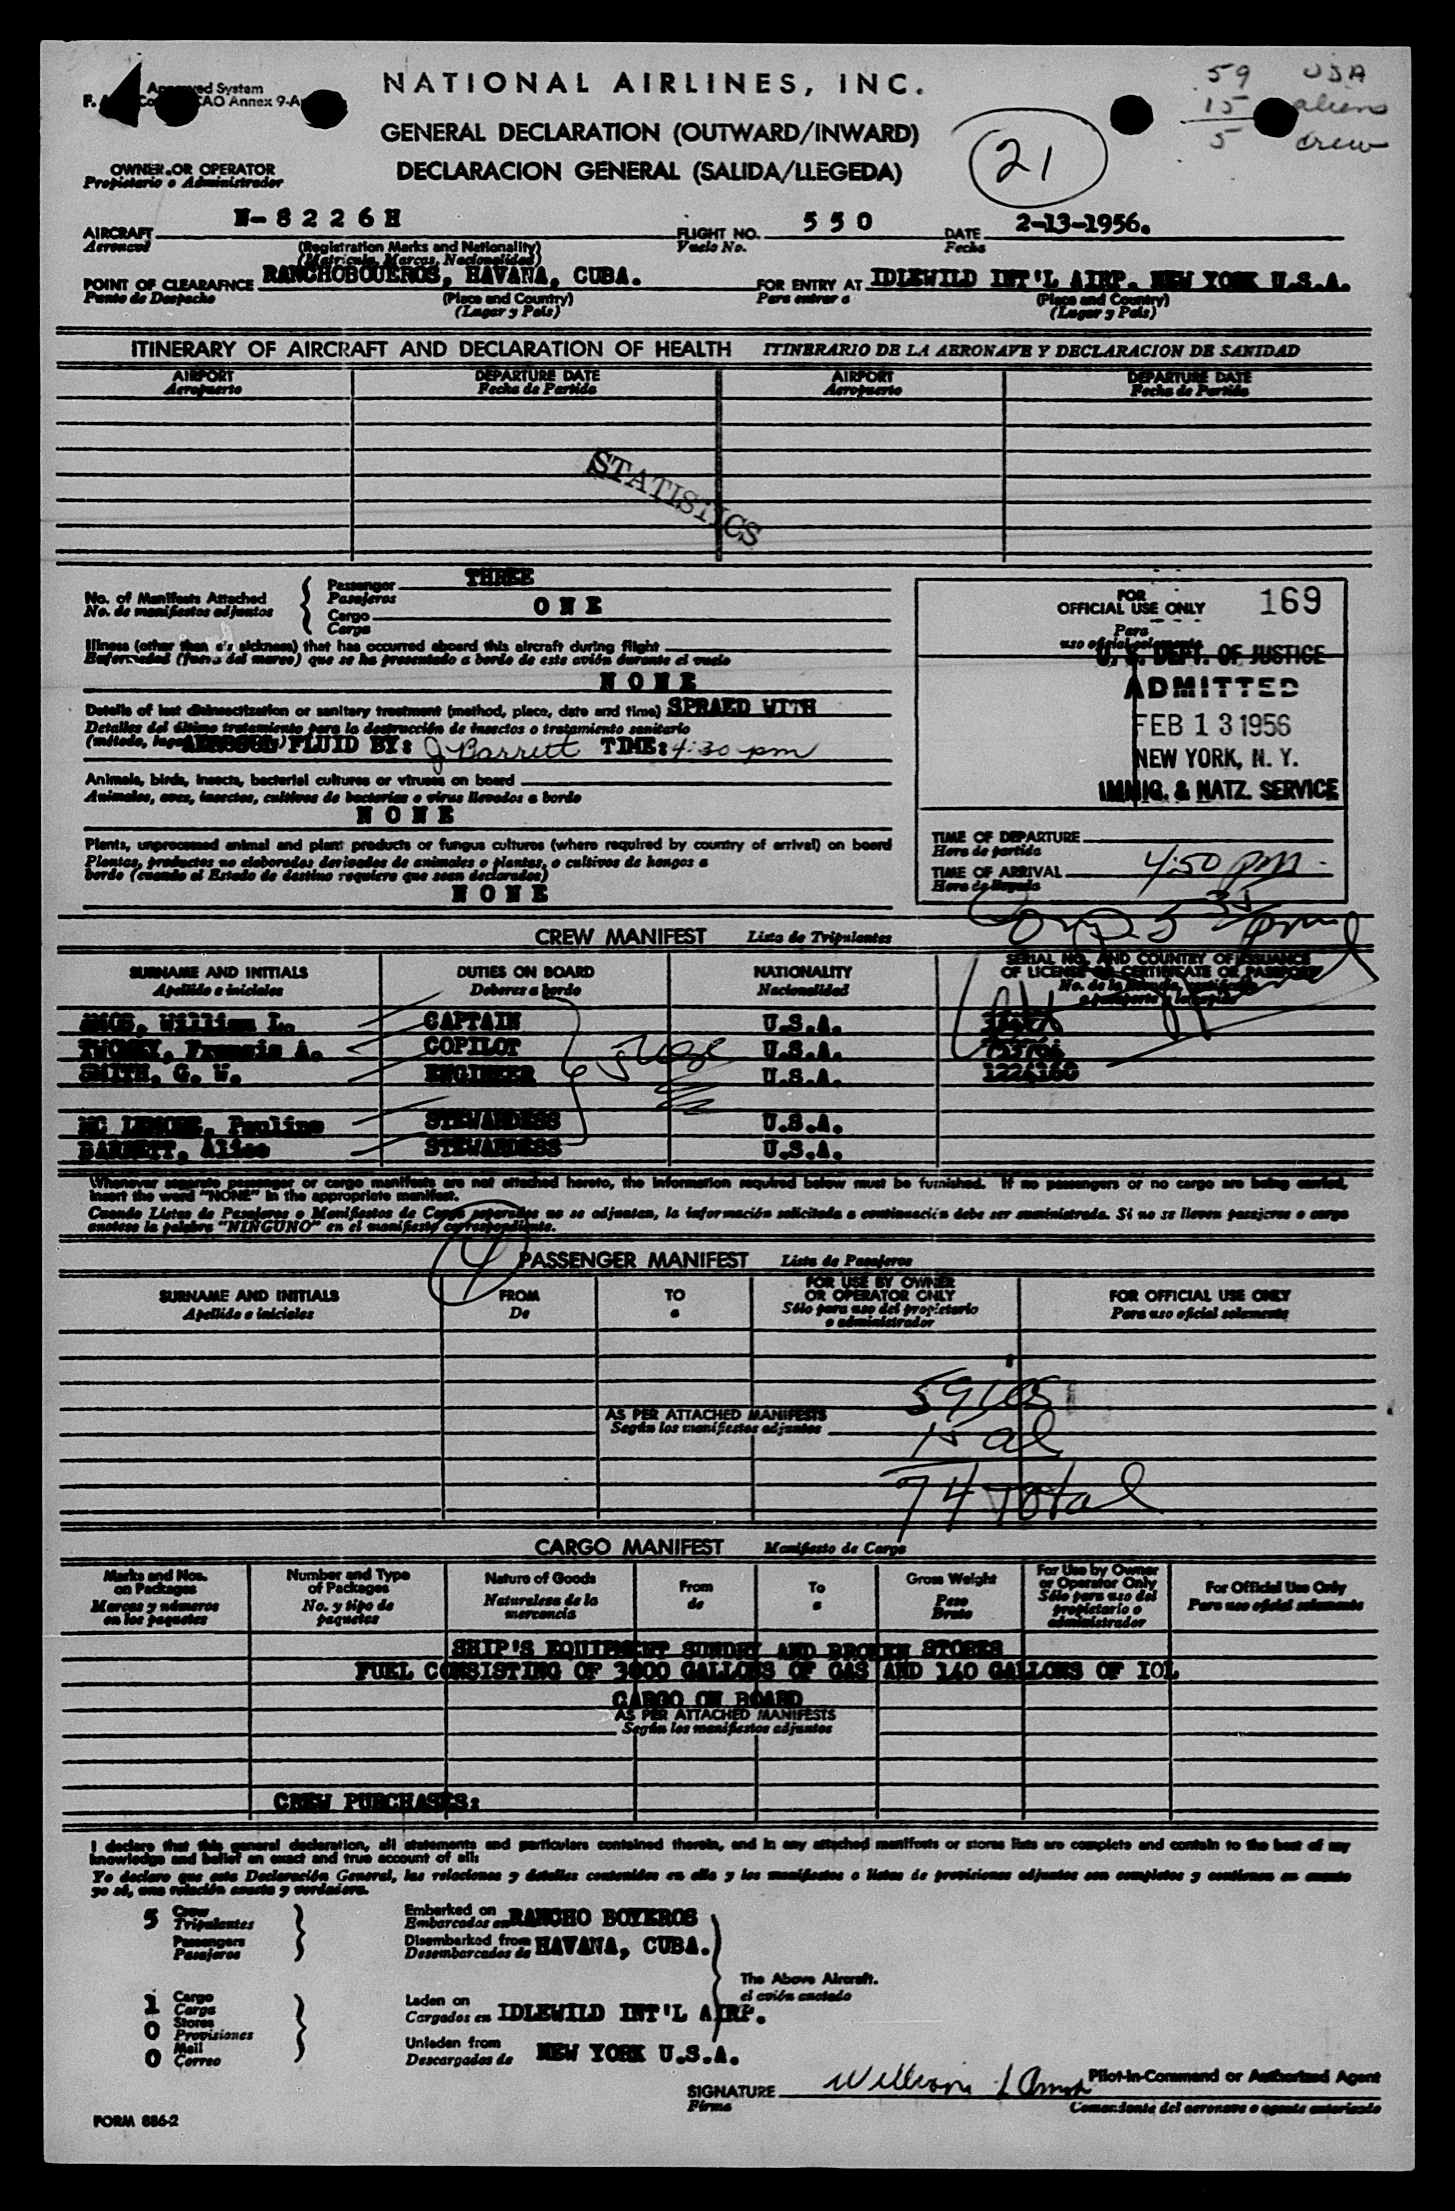 NATIONAL AIRLINES, INC.
59 USA
15 aliens
5 crew
GENERAL DECLARATION (OUTWARD/INWARD)
DECLARACION GENERAL (SALIDA/LLEGEDA)
21
OWNER OR OPERATOR
Propietario o Administrador
AIRCRAFT N-8226H FLIGHT NO. 550 DATE 2-13-1956.
Aeronave (Registration Marks and Nationality) Vuelo No. Fecha
(Matricula, Marcas, Nacionalidad)
POINT OF CLEARAFNCE RANCHOBOUEROS, HAVANA, CUBA. FOR ENTRY AT IDLEWILD INT'L AIRP. NEW YORK U.S.A.
Punto de Despacho (Place and Country) Para entrar a (Place and Country)
(Lugar y País) (Lugar y País)
ITINERARY OF AIRCRAFT AND DECLARATION OF HEALTH ITINERARIO DE LA AERONAVE Y DECLARACION DE SANIDAD
AIRPORT DEPARTURE DATE AIRPORT DEPARTURE DATE
Aeropuerto Fecha de Partida Aeropuerto Fecha de Partida
STATISTICS
No. of Manifests Attached Passenger THREE
No. de manifiestos adjuntos Pasajeros
Cargo ONE
Carga
Illness (other than air sickness) that has occurred aboard this aircraft during flight
Enfermedad (fuera del mareo) que se ha presentado a bordo de este avión durante el vuelo
NONE
Details of last disinsectization or sanitary treatment (method, place, date and time) SPRAED WITH
Detalles del último tratamiento para la destrucción de insectos o tratamiento sanitario
(método, AEROSOL FLUID BY: J Barrett TIME: 4:30 pm
Animals, birds, insects, bacterial cultures or viruses on board
Animales, aves, insectos, cultivos de bacterias o virus llevados a bordo
NONE
Plants, unprocessed animal and plant products or fungus cultures (where required by country of arrival) on board
Plantas, productos no elaborados derivados de animales o plantas, o cultivos de hongos a
bordo (cuando el Estado de destino requiere que sean declarados)
NONE
FOR
OFFICIAL USE ONLY 169
Para
uso oficial solamente
U. S. DEPT. OF JUSTICE
ADMITTED
FEB 13 1956
NEW YORK, N. Y.
IMMIG. & NATZ. SERVICE
TIME OF DEPARTURE
Hora de partida
TIME OF ARRIVAL 4:50 pm
Hora de llegada
5 35 pm
CREW MANIFEST Lista de Tripulantes
SURNAME AND INITIALS DUTIES ON BOARD NATIONALITY SERIAL NO. AND COUNTRY OF ISSUANCE
OF LICENSE OR CERTIFICATE OR PASSPORT
Apellido e iniciales Deberes a bordo Nacionalidad No. de la
AMOS, William L. CAPTAIN U.S.A.
TWOMEY, Francis A. COPILOT U.S.A.
SMITH, G. W. ENGINEER U.S.A. 1224160
MC LEMORE, Pauline STEWARDESS U.S.A.
BARRETT, Alice STEWARDESS U.S.A.
Whenever separate passenger or cargo manifests are not attached hereto, the information required below must be furnished. If no passengers or no cargo are being carried,
insert the word "NONE" in the appropriate manifest.
Cuando Listas de Pasajeros o Manifiestos de Carga separados no se adjuntan, la información solicitada a continuación debe ser suministrada. Si no se llevan pasajeros o carga
anótese la palabra "NINGUNO" en el manifiesto correspondiente.
4
PASSENGER MANIFEST Lista de Pasajeros
SURNAME AND INITIALS FROM TO FOR USE BY OWNER OR OPERATOR ONLY FOR OFFICIAL USE ONLY
Apellido e iniciales De a Sólo para uso del propietario o administrador Para uso oficial solamente
59 US
AS PER ATTACHED MANIFESTS
Según los manifiestos adjuntos
15 al
74 Total
CARGO MANIFEST Manifiesto de Carga
Marks and Nos. on Packages Number and Type of Packages Nature of Goods From To Gross Weight For Use by Owner or Operator Only For Official Use Only
Marcas y números en los paquetes No. y tipo de paquetes Naturaleza de la mercancia de a Peso Bruto Sólo para uso del propietario o administrador Para uso oficial solamente
SHIP'S EQUIPMENT SUNDRY AND BROKEN STORES
FUEL CONSISTING OF 3000 GALLONS OF GAS AND 140 GALLONS OF IOL
CARGO ON BOARD
AS PER ATTACHED MANIFESTS
Según los manifiestos adjuntos
CREW PURCHASES:
I declare that this general declaration, all statements and particulars contained therein, and in any attached manifests or stores lists are complete and contain to the best of my
knowledge and belief an exact and true account of all:
Yo declaro que esta Declaración General, las relaciones y detalles contenidos en ella y los manifiestos o listas de provisiones adjuntos son completos y contienen en cuanto
yo sé, una relación exacta y verdadera.
5 Crew Embarked on RANCHO BOYEROS
Tripulantes Embarcados en
Passengers Disembarked from HAVANA, CUBA.
Pasajeros Desembarcados de
The Above Aircraft.
el avión anotado
1 Cargo Laden on IDLEWILD INT'L AIRP.
Carga Cargados en
0 Stores
Provisiones
0 Mail Unladen from NEW YORK U.S.A.
Correo Descargados de
SIGNATURE William L Amos Pilot-in-Command or Authorized Agent
Firma Comandante del aeronave o agente autorizado
FORM 886-2